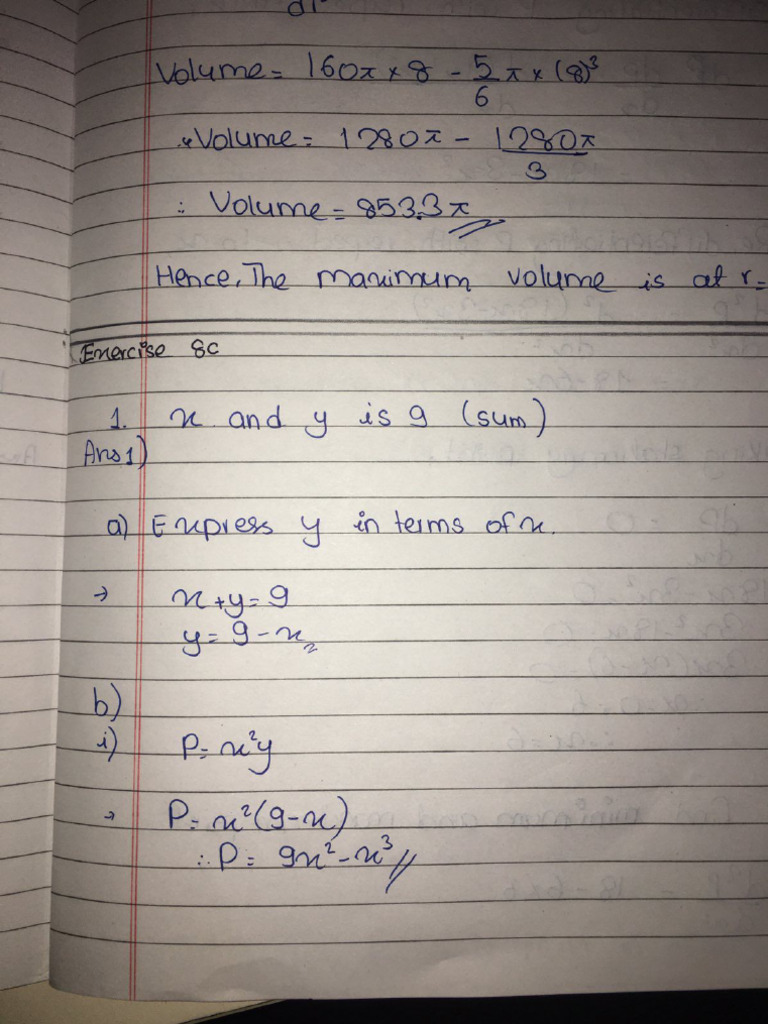 Volume = 160π × 8 - 5/6 π × (8)³
∴ Volume = 1280π - 1280π/3
∴ Volume = 853.3π
Hence, The maximum volume is at r=
Exercise 8C
1. x and y is 9 (sum)
Ans 1)
a) Express y in terms of x.
→ x + y = 9
y = 9 - x
b)
i) P = x²y
→ P = x²(9-x)
∴ P = 9x² - x³